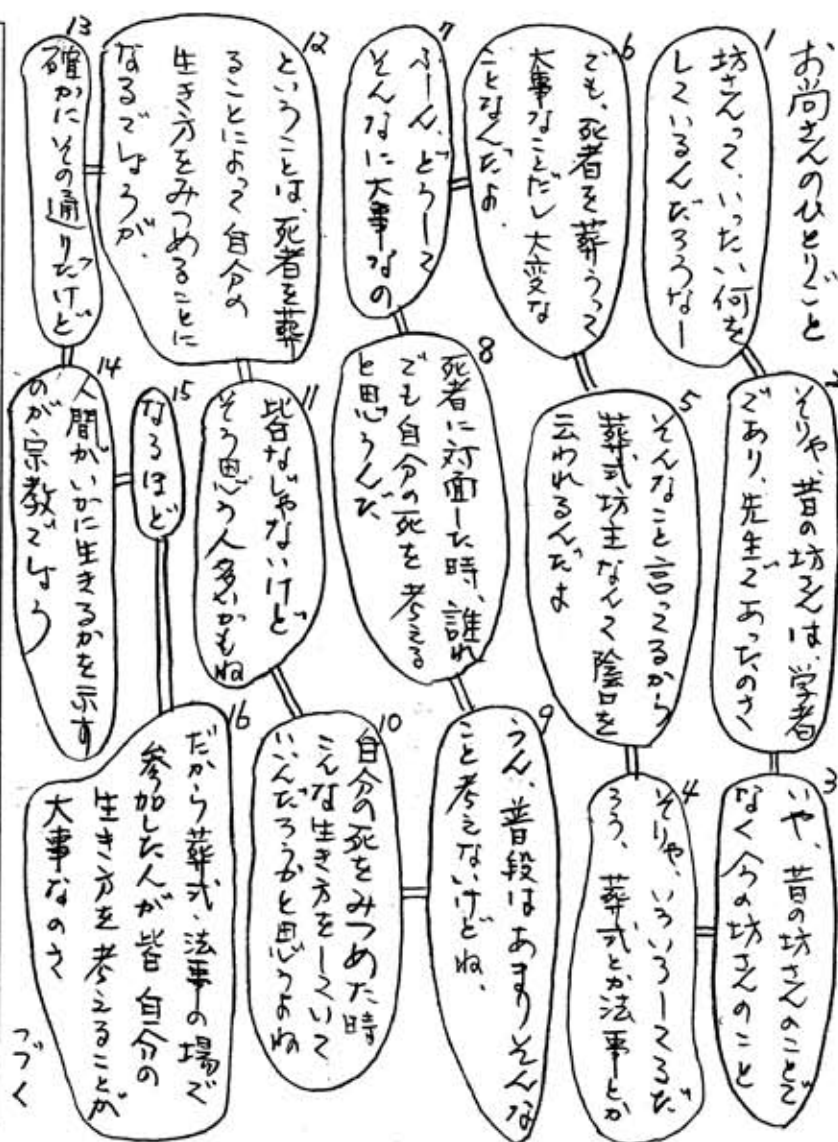 お尚さんのひとりごと
1
坊さんって、いったい何を
しているんだろうなー
2
そりゃ、昔の坊さんは、学者
であり、先生であったのさ
3
いや、昔の坊さんのことで
なく今の坊さんのこと
4
そりゃ、いろいろしてるだ
ろう、葬式とか法事とか
5
そんなこと言ってるから
葬式坊主なんて陰口を
云われるんだよ
6
でも、死者を葬うって
大事なことだし大変な
ことなんだよ
7
ふーん、どうして
そんなに大事なの
8
死者に対面した時、誰れ
でも自分の死を考える
と思うんだ
9
うん、普段はあまりそんな
こと考えないけどね、
10
自分の死をみつめた時
こんな生き方をしていて
いいんだろうかと思うよね
11
皆なじゃないけど
そう思う人多いかもね
12
ということは、死者を葬
ることによって自分の
生き方をみつめることに
なるでしょうが、
13
確かにその通りだけど
14
人間がいかに生きるかを示す
のが宗教でしょう
15
なるほど
16
だから葬式、法事の場で
参加した人が皆自分の
生き方を考えることが
大事なのさ
つづく